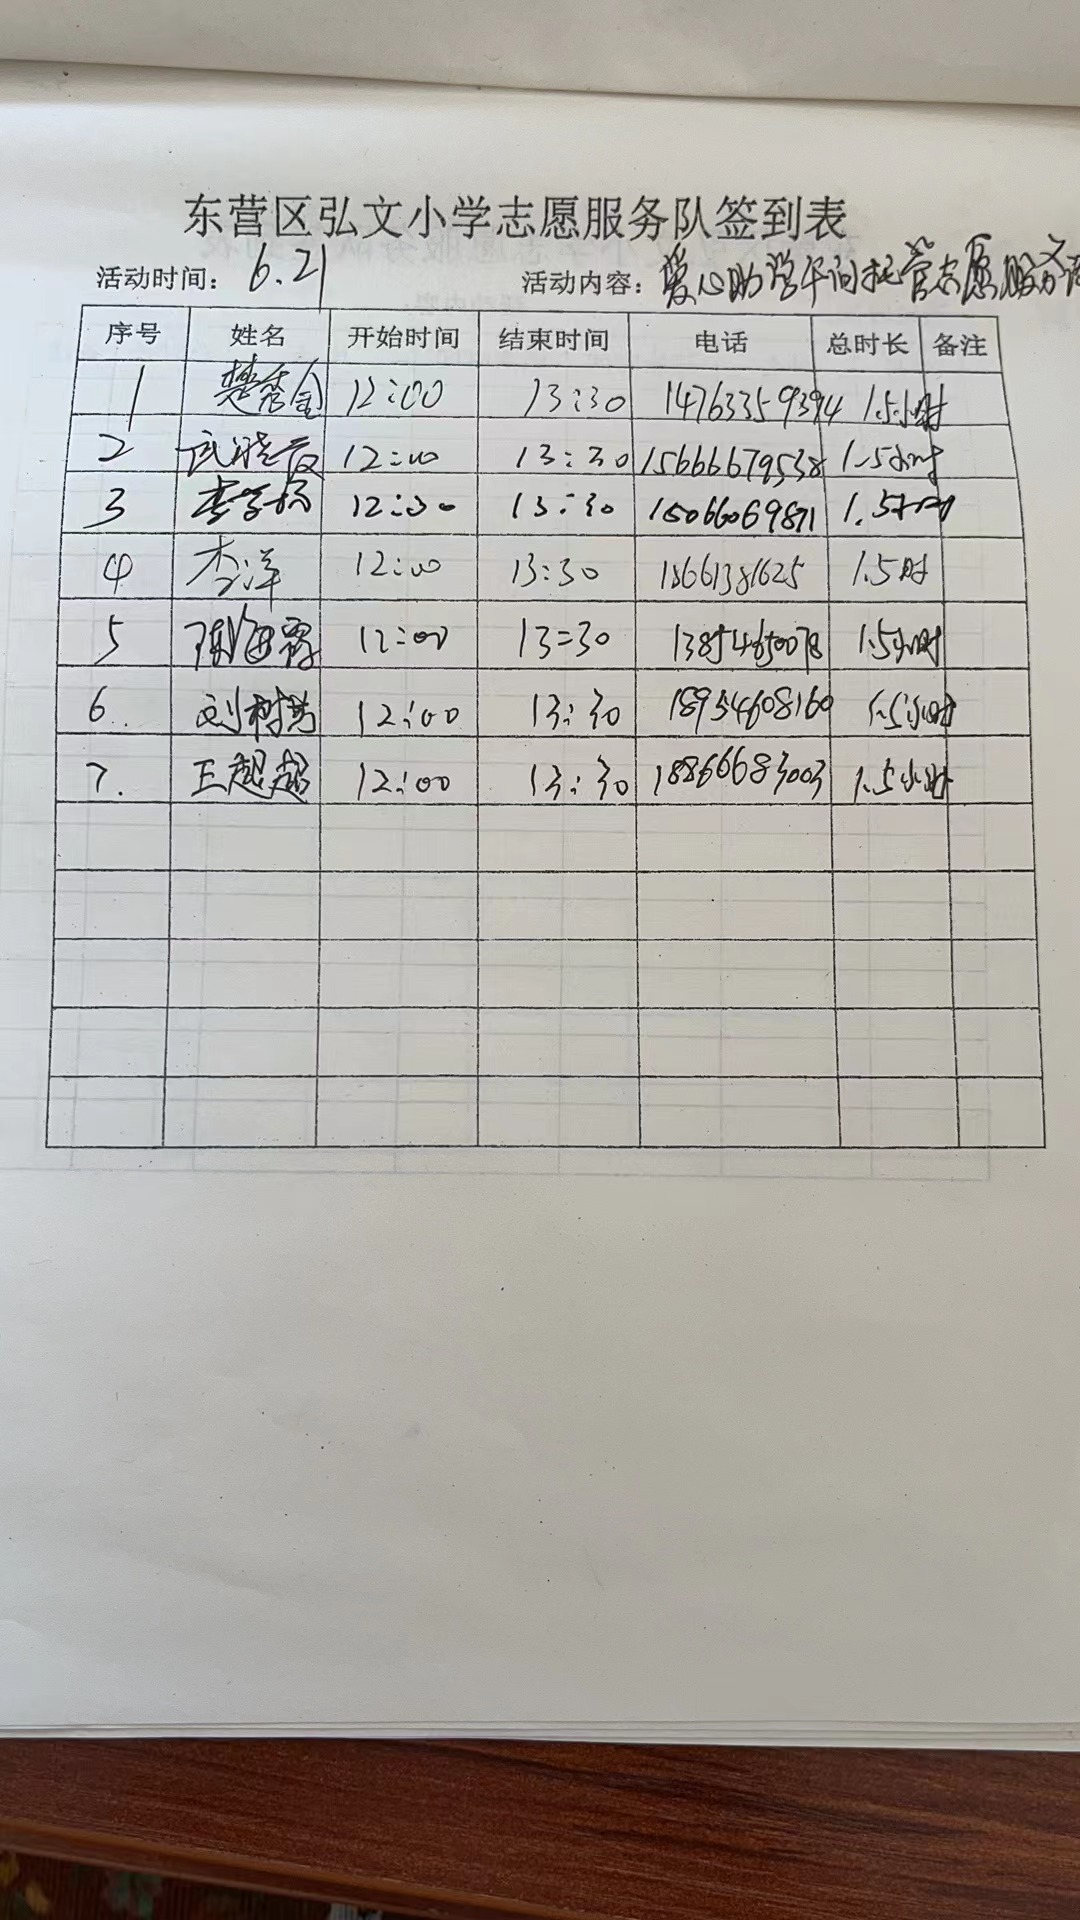 东营区弘文小学志愿服务队签到表
活动时间：6.21 活动内容：爱心助学午间托管志愿服务
序号 姓名 开始时间 结束时间 电话 总时长 备注
1 楚秀金 12:00 13:30 14763359394 1.5小时
2 武晓霞 12:00 13:30 15666679538 1.5小时
3 12:00 13:30 15066069871 1.5小时
4 李洋 12:00 13:30 18661381625 1.5时
5 陈海霞 12:00 13:30 13854650078 1.5小时
6. 刘树 12:00 13:30 18954608160 1.5小时
7. 王超超 12:00 13:30 18866683003 1.5小时